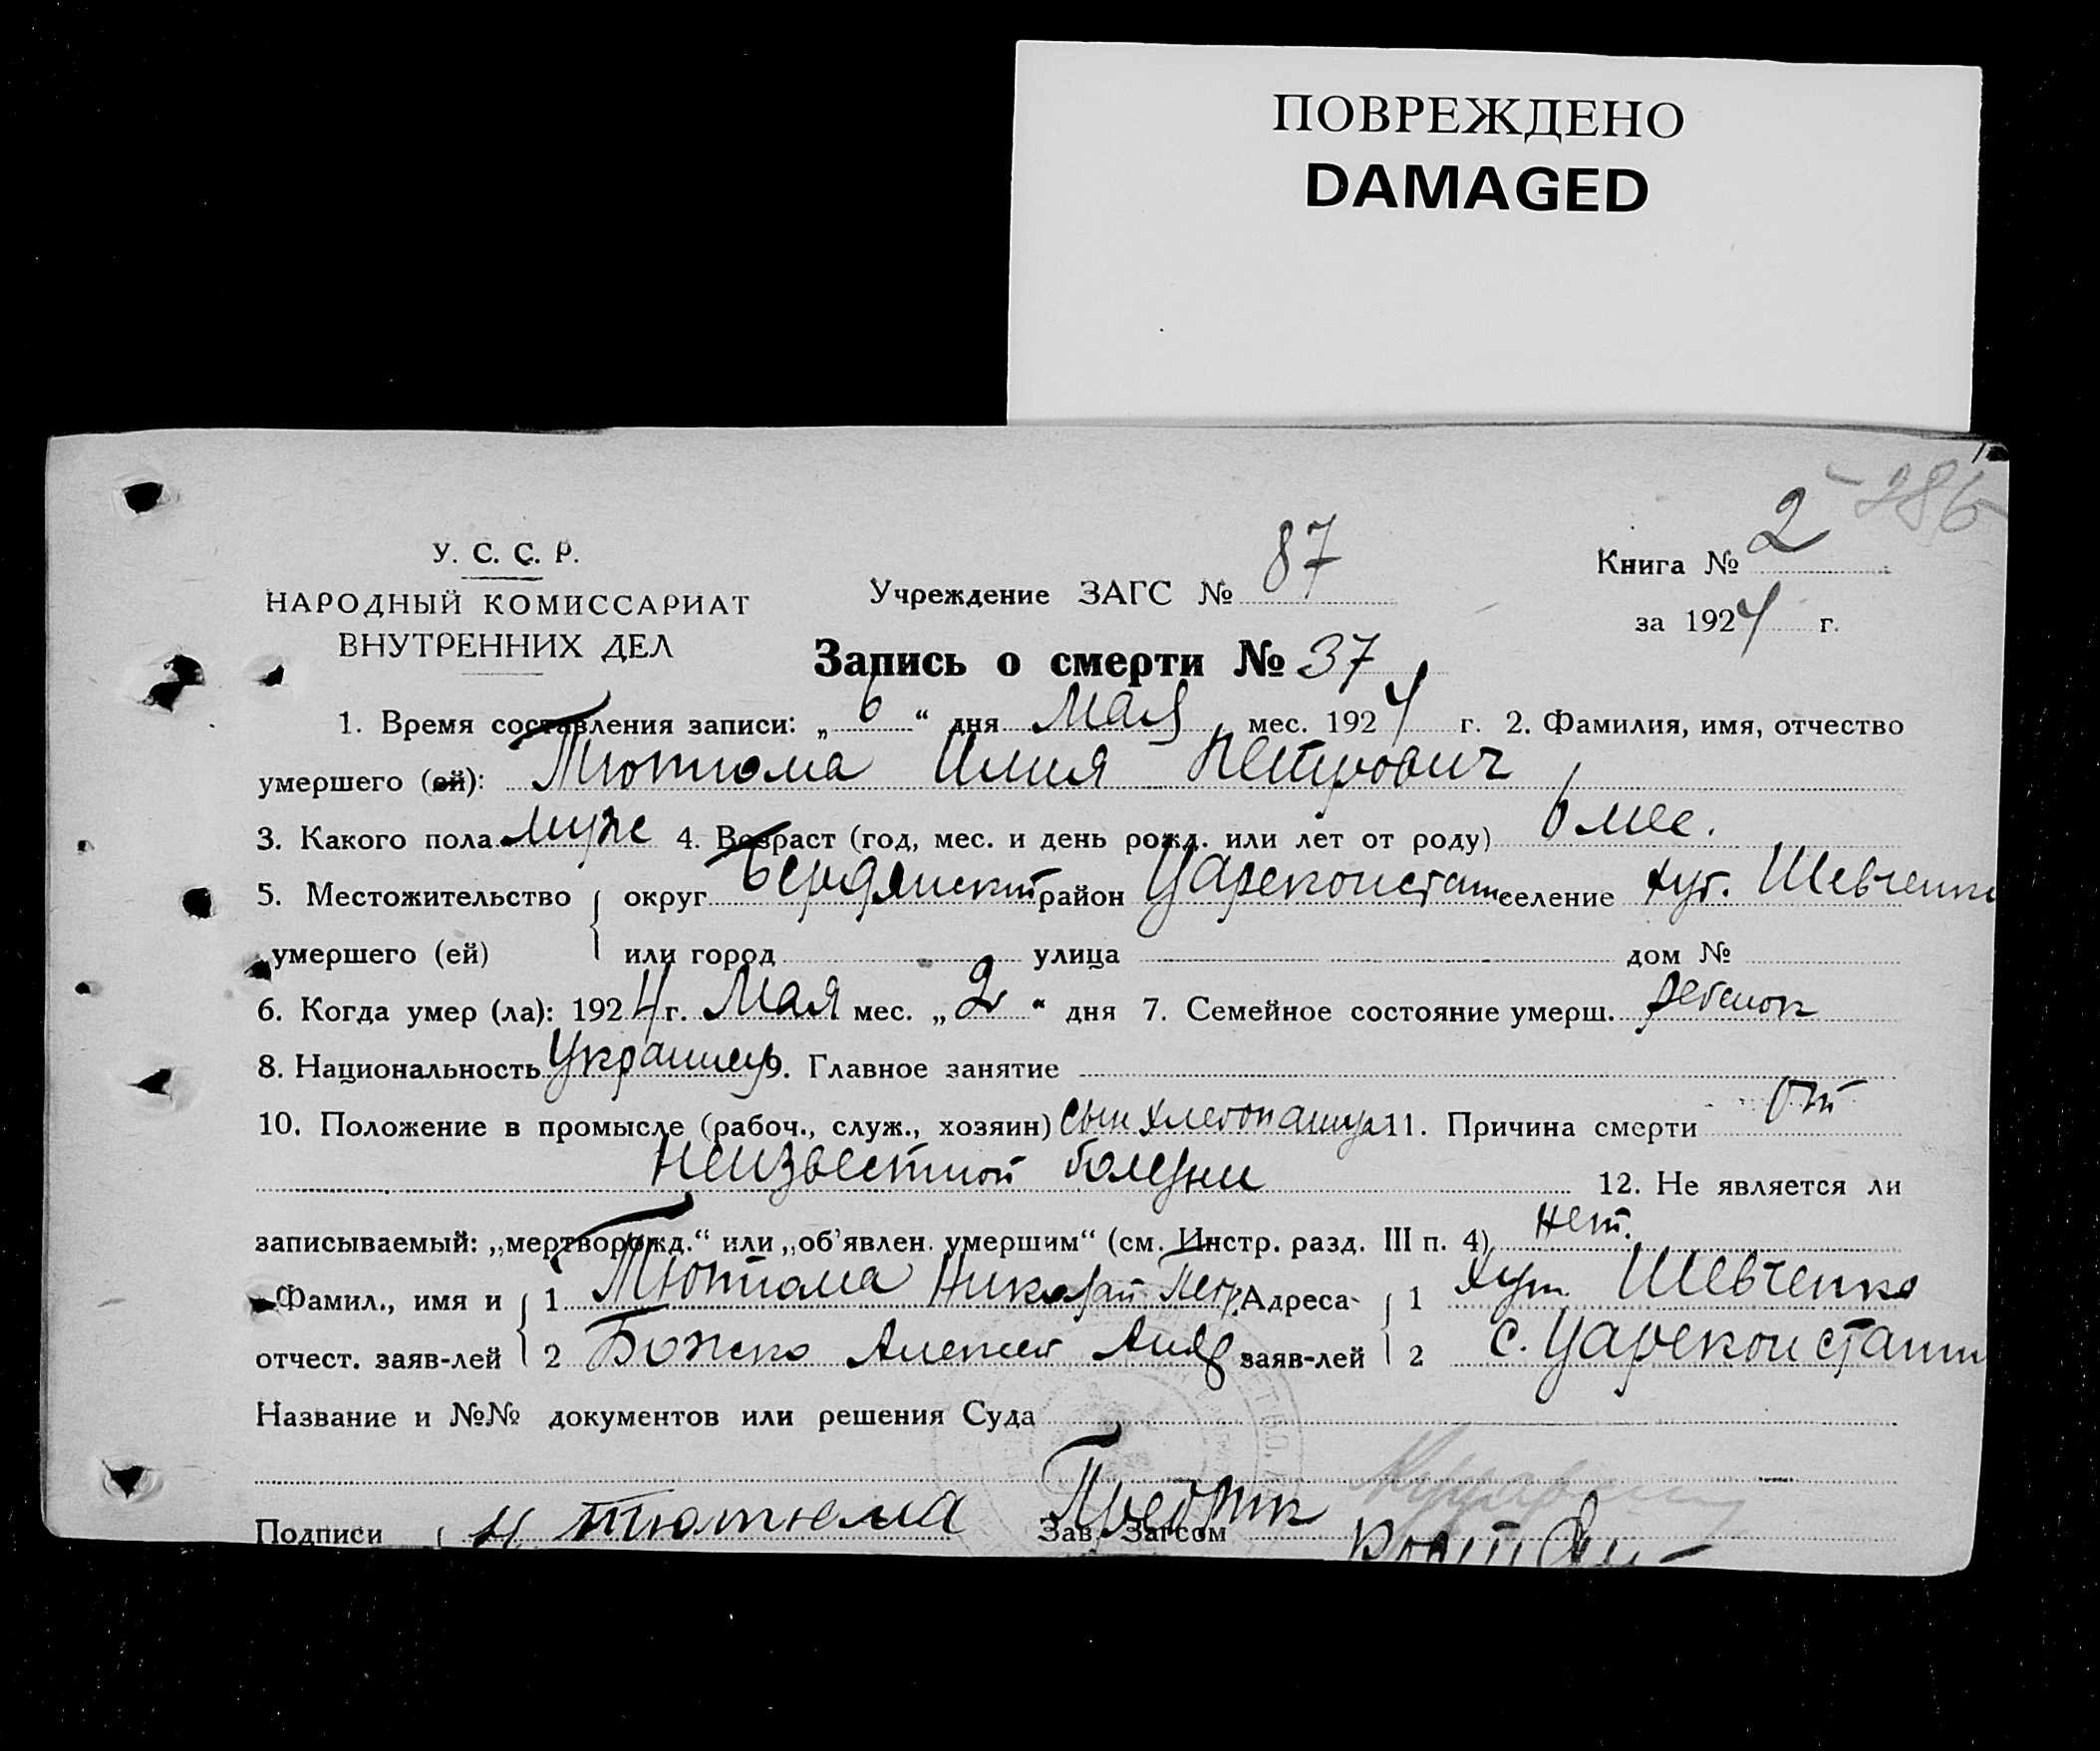 ПОВРЕЖДЕНО
DAMAGED
-386
У. С. С. Р.
НАРОДНЫЙ КОМИССАРИАТ
ВНУТРЕННИХ ДЕЛ
Учреждение ЗАГС № 87
Книга № 2
за 1924 г.
Запись о смерти № 37
1. Время составления записи: „6“ дня Мая мес. 1924 г. 2. Фамилия, имя, отчество
умершего (ей): Тютюма Илия Петрович
3. Какого пола муж 4. Возраст (год, мес. и день рожд. или лет от роду) 6 мес.
5. Местожительство округ Бердянский район Цареконстан селение хут. Шевченко
умершего (ей) или город улица дом №
6. Когда умер (ла): 1924 г. Мая мес. „2“ дня 7. Семейное состояние умерш. ребенок
8. Национальность Украинец 9. Главное занятие
10. Положение в промысле (рабоч., служ., хозяин) сын хлебопашца 11. Причина смерти от
неизвестной болезни 12. Не является ли
записываемый: „мертворожд.“ или „об'явлен. умершим“ (см. Инстр. разд. III п. 4) нет.
Фамил., имя и 1 Тютюма Николай Петр. Адреса- 1 хут. Шевченко
отчест. заяв-лей 2 Божко Алексей Анд заяв-лей 2 с. Цареконстант
Название и №№ документов или решения Суда
Подписи Н Тютюма Зав. Загсом